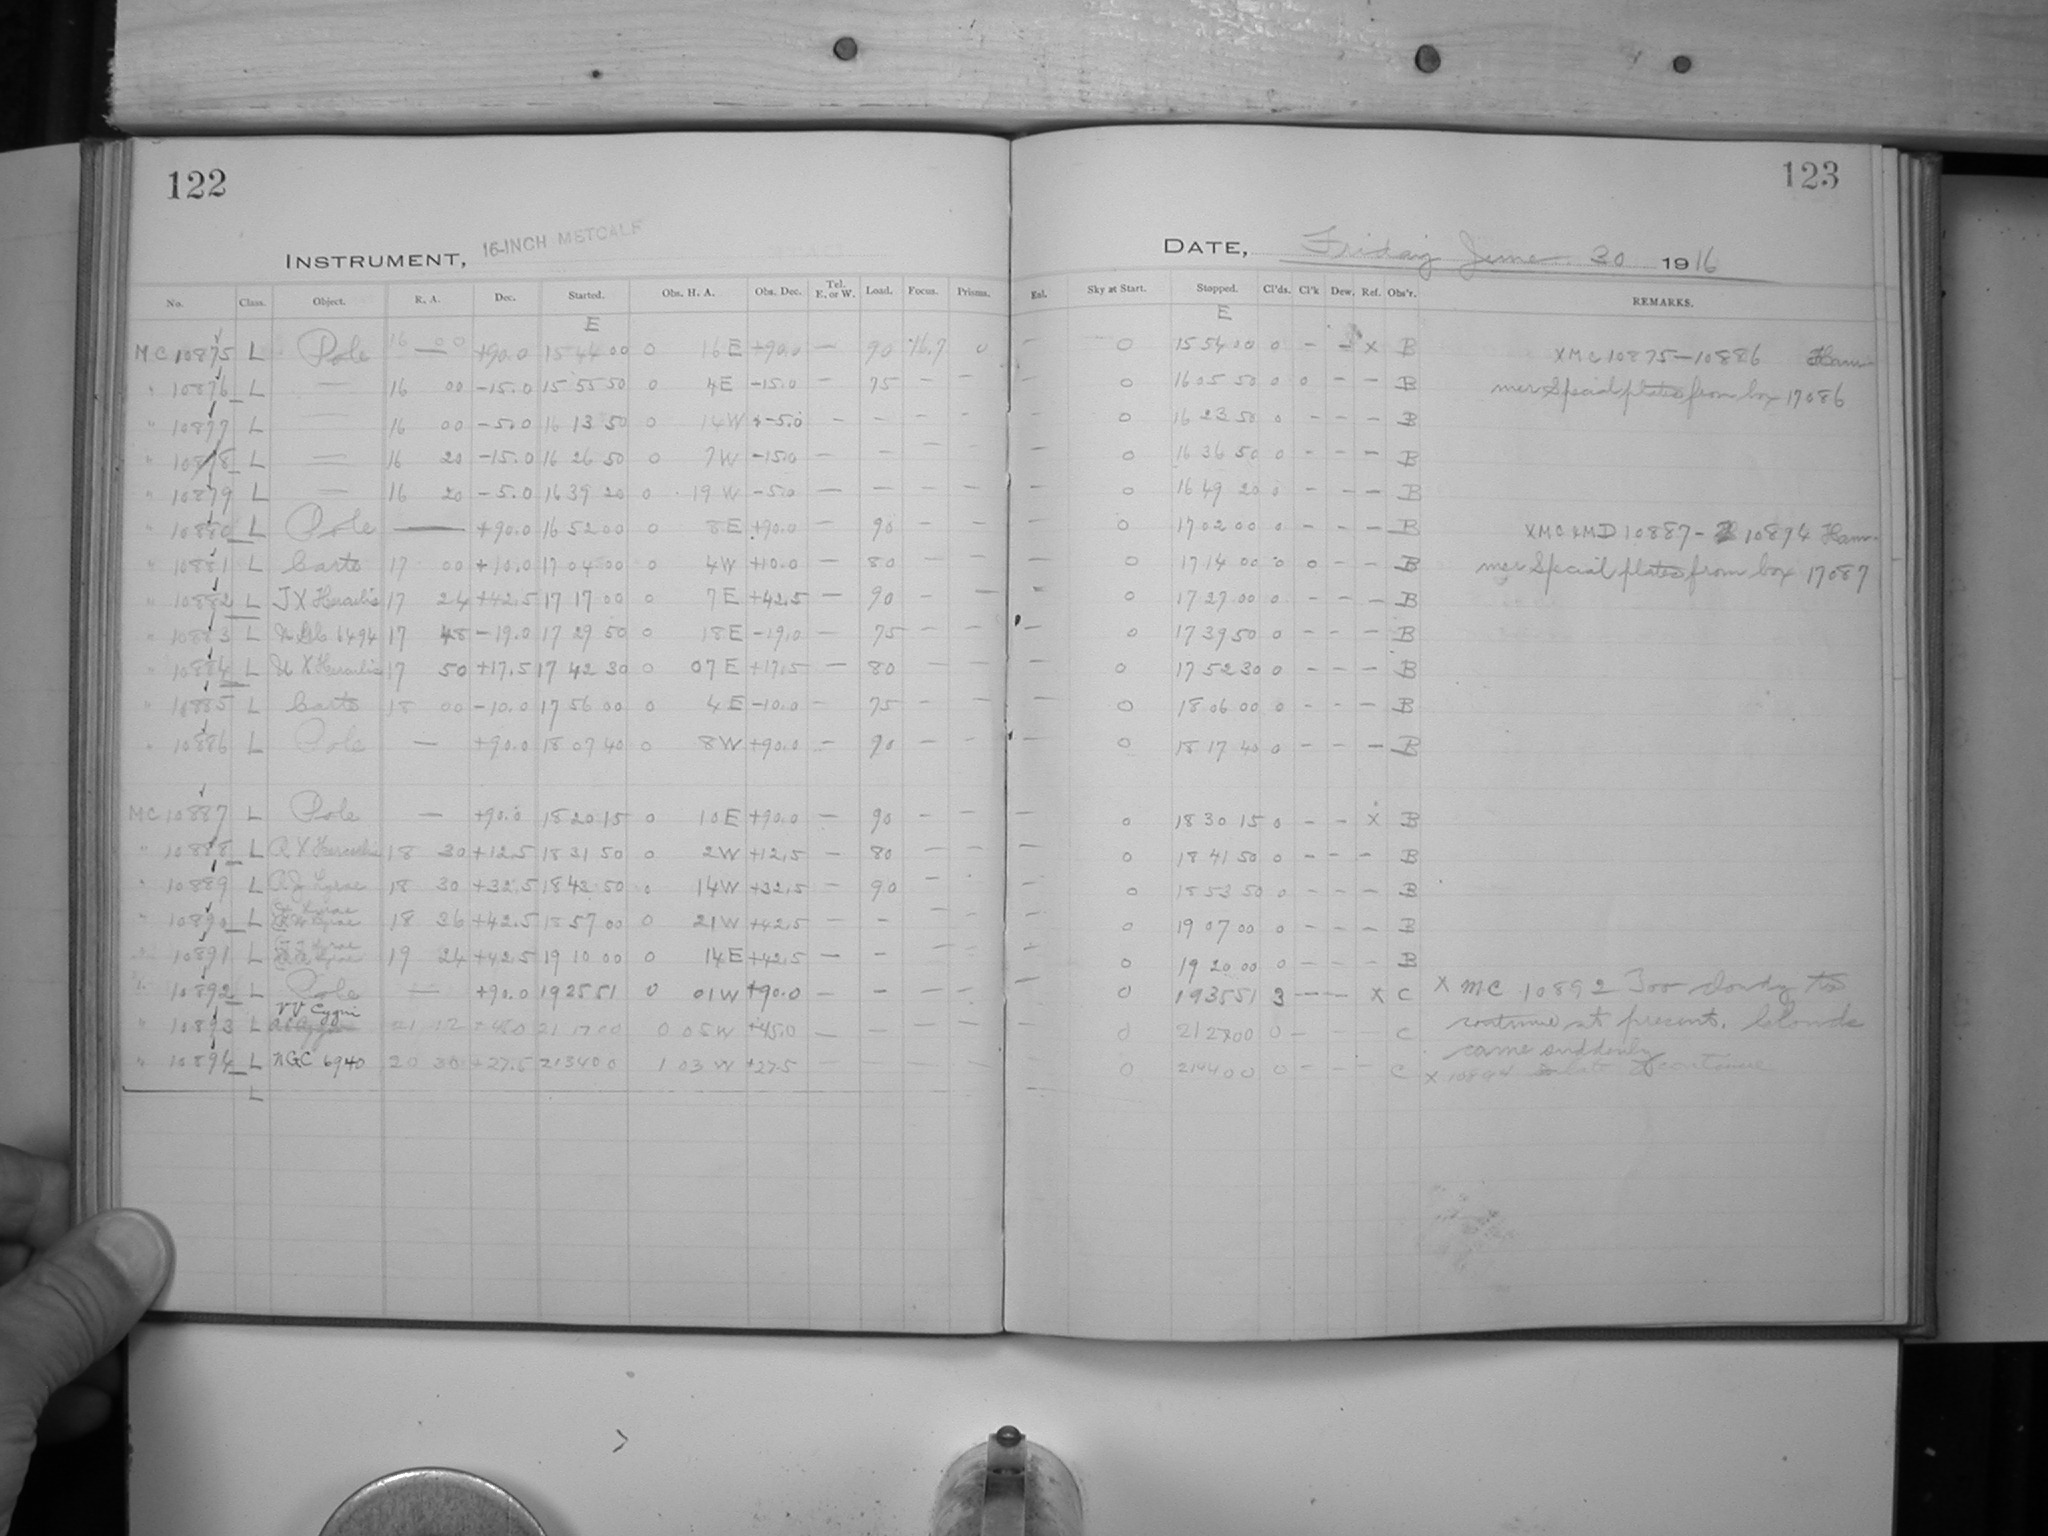 122
INSTRUMENT, 16-INCH METCALF
No. Class. Object. R. A. Dec. Started. Obs. H. A. Obs. Dec. Tel. E. or W. Load. Focus. Prisms.
E
MC 10875 L Pole 16 00 — +90.0 15 44 00 0 16 E +90.0 — 90 16.7 0
" 10876 L — 16 00 -15.0 15 55 50 0 4 E -15.0 — 75 — —
" 10877 L — 16 00 -5.0 16 13 50 0 14 W -5.0 — — — —
" 10878 L — 16 20 -15.0 16 26 50 0 7 W -15.0 — — — —
" 10879 L — 16 20 -5.0 16 39 20 0 19 W -5.0 — — — —
" 10880 L Pole — +90.0 16 52 00 0 8 E +90.0 — 90 — —
" 10881 L Carto 17 00 +10.0 17 04 00 0 4 W +10.0 — 80 — —
" 10882 L Herculis 17 24 +42.5 17 17 00 0 7 E +42.5 — 90 — —
" 10883 L 6494 17 48 -19.0 17 29 50 0 18 E -19.0 — 75 — —
" 10884 L Herculis 17 50 +17.5 17 42 30 0 07 E +17.5 — 80 — —
" 10885 L Carto 18 00 -10.0 17 56 00 0 4 E -10.0 — 75 — —
" 10886 L Pole — +90.0 18 07 40 0 8 W +90.0 — 90 — —
MC 10887 L Pole — +90.0 18 20 15 0 10 E +90.0 — 90 — —
" 10888 L Herculis 18 30 +12.5 18 31 50 0 2 W +12.5 — 80 — —
" 10889 L Lyrae 18 30 +32.5 18 43 50 0 14 W +32.5 — 90 — —
" 10890 L Lyrae 18 36 +42.5 18 57 00 0 21 W +42.5 — — — —
" 10891 L Lyrae 19 24 +42.5 19 10 00 0 14 E +42.5 — — — —
" 10892 L Pole — +90.0 19 25 51 0 01 W +90.0 — — — —
" 10893 L VV Cygni 21 12 +45.0 21 17 00 0 05 W +45.0 — — — —
" 10894 L NGC 6940 20 30 +27.5 21 34 00 1 03 W +27.5 — — — —
L
123
DATE, Friday June 30 1916
Exl. Sky at Start. Stopped. Cl'ds. Cl'k Dew. Ref. Obs'r. REMARKS.
E
— 0 15 54 00 0 - - x B xMC 10875—10886 Ham-
— 0 16 05 50 0 0 - - B mer Special plates from box 17086
— 0 16 23 50 0 - - - B
— 0 16 36 50 0 - - - B
— 0 16 49 20 0 - - - B
— 0 17 02 00 0 - - - B xMC xMD 10887- 10894 Ham-
— 0 17 14 00 0 0 - - B mer Special plates from box 17087
— 0 17 27 00 0 - - - B
— 0 17 39 50 0 - - - B
— 0 17 52 30 0 - - - B
— 0 18 06 00 0 - - - B
— 0 18 17 40 0 - - - B
— 0 18 30 15 0 - - x B
— 0 18 41 50 0 - - - B
— 0 18 53 50 0 - - - B
— 0 19 07 00 0 - - - B
— 0 19 20 00 0 - - - B
— 0 19 35 51 3 - - x C x MC 10892 Too cloudy to
— 0 21 28 00 0 - C continue at present. Clouds
came suddenly
— 0 21 44 00 0 - - - C x 10894 late continue